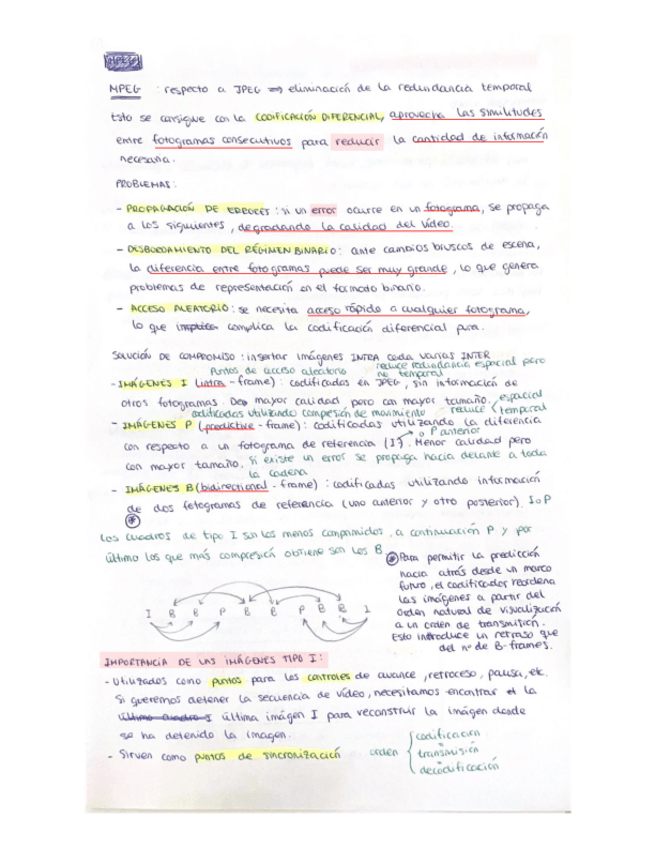 MPEG : respecto a JPEG ⇒ eliminación de la redundancia temporal
Esto se consigue con la CODIFICACIÓN DIFERENCIAL, aprovecha las similitudes
entre fotogramas consecutivos para reducir la cantidad de información
necesaria.
PROBLEMAS:
- PROPAGACIÓN DE ERRORES : si un error ocurre en un fotograma, se propaga
a los siguientes, degradando la calidad del vídeo.
- DESBORDAMIENTO DEL RÉGIMEN BINARIO: ante cambios bruscos de escena,
la diferencia entre fotogramas puede ser muy grande, lo que genera
problemas de representación en el formato binario.
- ACCESO ALEATORIO: se necesita acceso rápido a cualquier fotograma,
lo que complica la codificación diferencial pura.
SOLUCIÓN DE COMPROMISO : insertar imágenes INTRA cada varias INTER
Puntos de acceso aleatorio
reduce redundancia espacial pero
no temporal
- IMÁGENES I (intra - frame) : codificadas en JPEG, sin información de
otros fotogramas. mayor calidad pero con mayor tamaño.
codificadas utilizando compesión de movimiento reduce espacial
temporal
- IMÁGENES P (predictive - frame) : codificadas utilizando la diferencia
con respecto a un fotograma de referencia (I) → o P anterior . Menor calidad pero
con mayor tamaño. Si existe un error se propaga hacia delante a toda
la cadena
- IMÁGENES B (bidirectional - frame) : codificadas utilizando información
de dos fotogramas de referencia (uno anterior y otro posterior). I o P
*
Los cuadros de tipo I son los menos comprimidos, a continuación P y por
último los que más compresión obtiene son los B
* Para permitir la predicción
hacia atrás desde un marco
futuro, el codificador reordena
las imágenes a partir del
orden natural de visualización
a un orden de transmisión.
Esto introduce un retraso que
del nº de B-frames.
I B B P B B P B B I
IMPORTANCIA DE LAS IMÁGENES TIPO I :
- Utilizados como puntos para los controles de avance, retroceso, pausa, etc.
Si queremos detener la secuencia de vídeo, necesitamos encontrar la
última imágen I para reconstruir la imagen desde
se ha detenido la imagen.
- Sirven como puntos de sincronización
orden { codificación
transmisión
decodificación